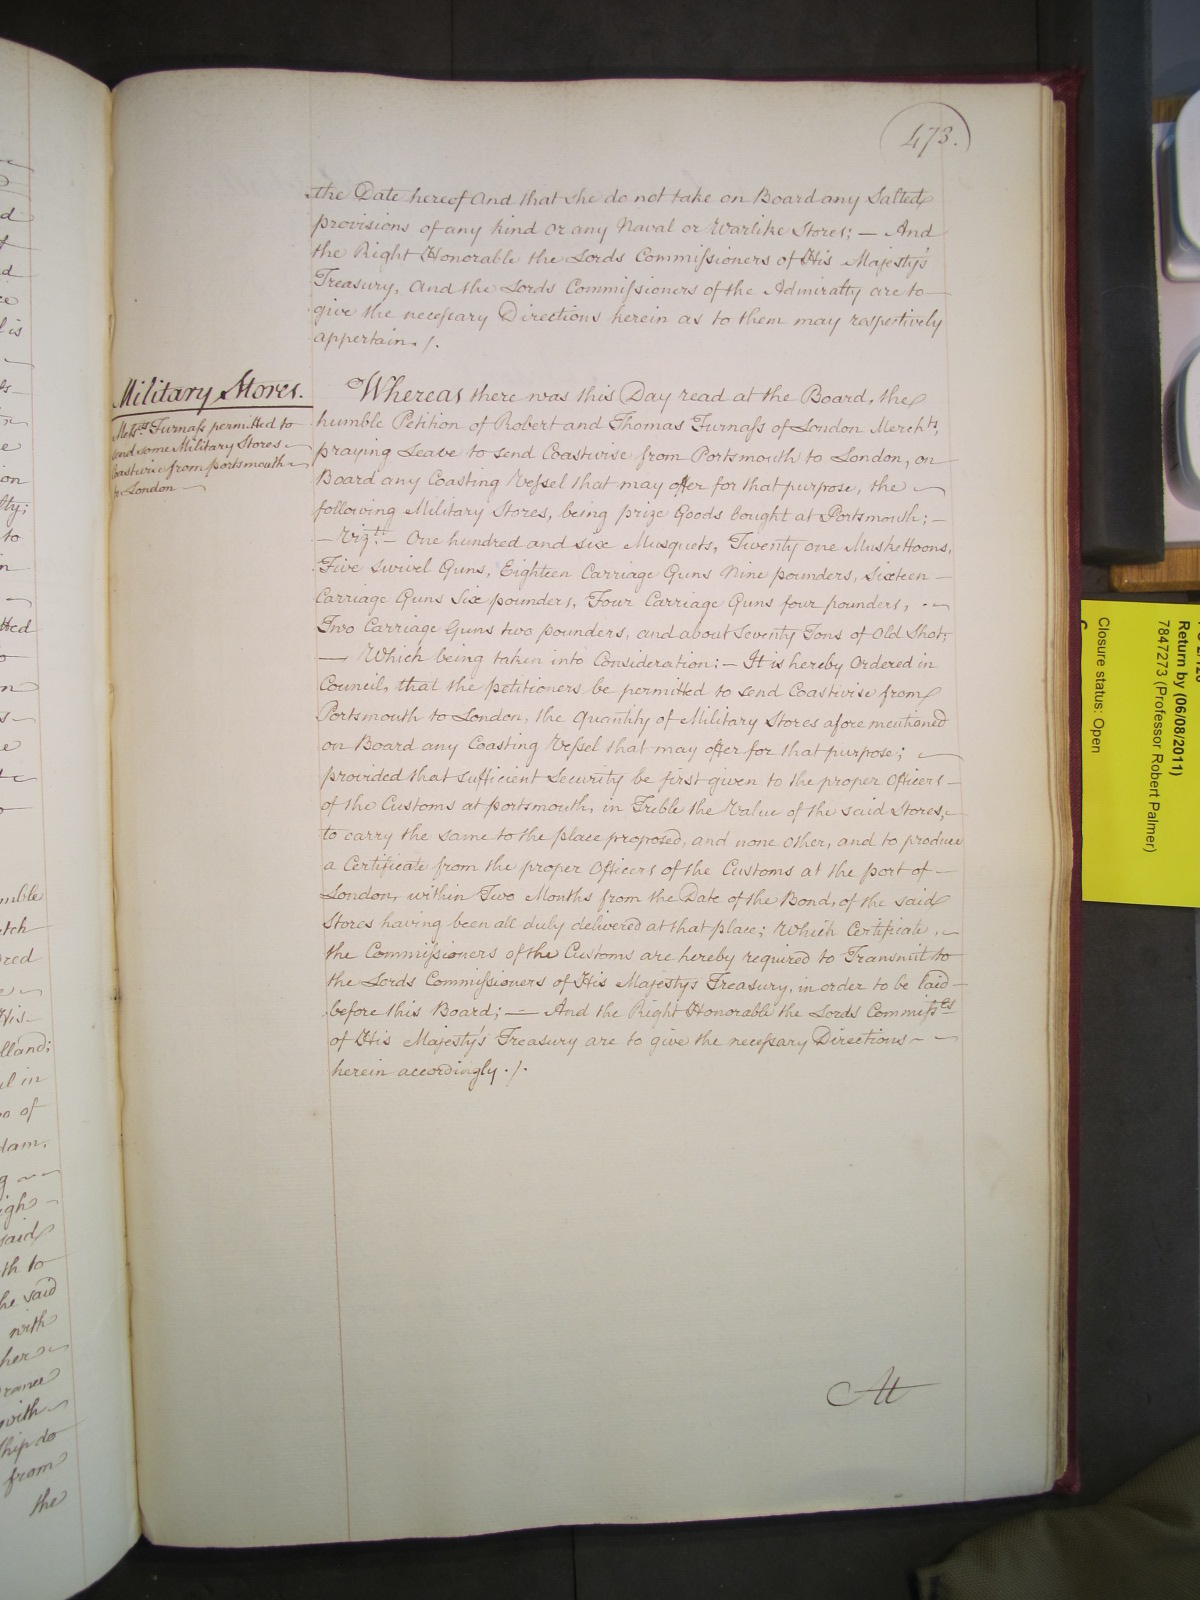 473.
the Date hereof And that she do not take on Board any Salted
provisions of any kind or any Naval or Warlike Stores; — And
the Right Honorable the Lords Commissioners of His Majesty's
Treasury, and the Lords Commissioners of the Admiralty are to
give the necessary Directions herein as to them may respectively
appertain. /.
Military Stores.
Mess.rs Furnass permitted to
send some Military Stores
Coastwise from portsmouth
to London
Whereas there was this Day read at the Board, the
humble Petition of Robert and Thomas Furnass of London Mercht.s,
praying Leave to send Coastwise from Portsmouth to London, on
Board any Coasting Vessel that may offer for that purpose, the
following Military Stores, being prize Goods bought at Portsmouth; —
— Vizt. — One hundred and six Musquets, Twenty one Muskettoons,
Five Swivel Guns, Eighteen Carriage Guns Nine pounders, Sixteen —
Carriage Guns Six pounders, Four Carriage Guns four pounders, —
Two Carriage Guns two pounders, and about Seventy Tons of Old Shot;
— Which being taken into Consideration: — It is hereby Ordered in
Council, that the petitioners be permitted to send Coastwise from
Portsmouth to London, the Quantity of Military Stores afore mentioned
on Board any Coasting Vessel that may offer for that purpose;
provided that sufficient Security be first given to the proper Officers —
of the Customs at portsmouth, in Treble the Value of the said Stores,
to carry the same to the place proposed, and none other, and to produce
a Certificate from the proper Officers of the Customs at the port of —
London, within Two Months from the Date of the Bond, of the said
Stores having been all duly delivered at that place; Which Certificate,
the Commissioners of the Customs are hereby required to Transmit to
the Lords Commissioners of His Majestys Treasury, in order to be laid —
before this Board; — And the Right Honorable the Lords Commiss.rs
of His Majesty's Treasury are to give the necessary Directions —
herein accordingly. /.
At
Closure status: Open
Return by (06/08/2011)
7847273 (Professor Robert Palmer)
tted
mble
olland;
said
th to
he said
with
with
ship do
from
the